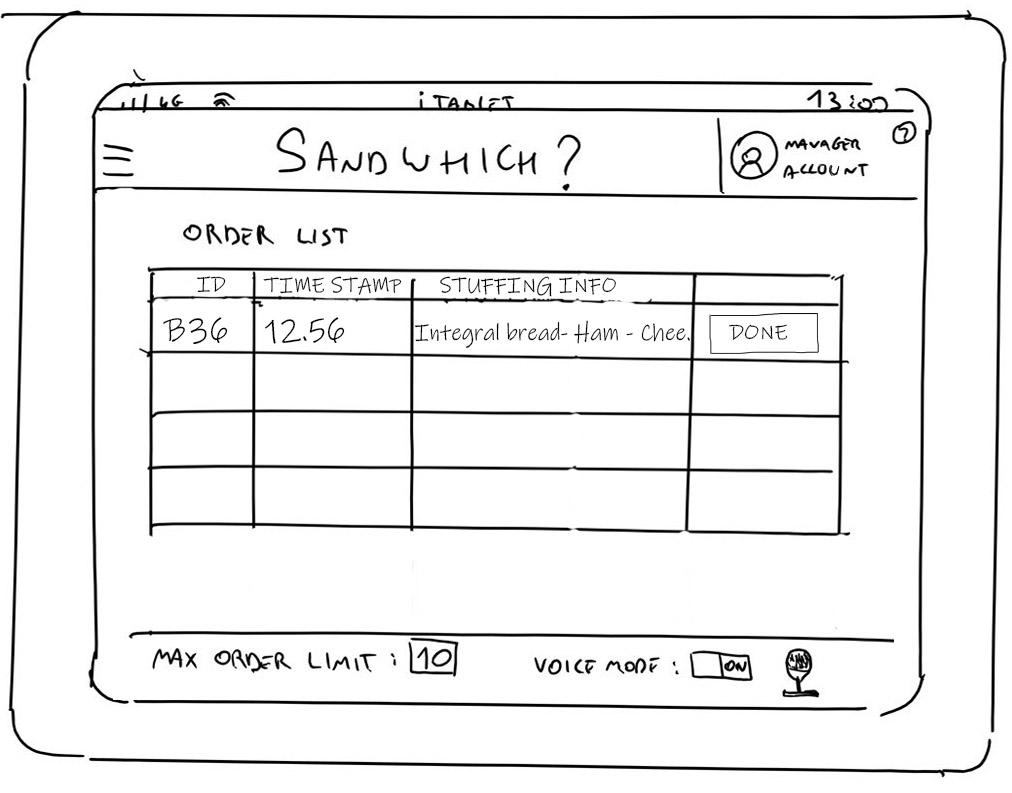 4G iTABLET 13:00
SANDWHICH?
MANAGER
ACCOUNT
?
ORDER LIST
ID TIME STAMP STUFFING INFO
B36 12.56 Integral bread- Ham - Chee. DONE
MAX ORDER LIMIT : 10 VOICE MODE : ON